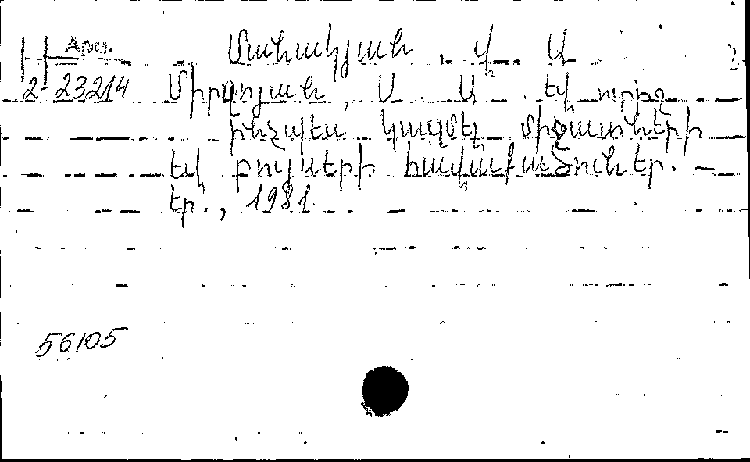 Արս.
2-23214
Սահակյան, Վ. Ա.
Միրզոյան, Ս. Ա. եվ ուրիշ
Ինչպես կազմել միջատների
եվ բույսերի հավաքածուներ. —
Եր., 1981.
56105